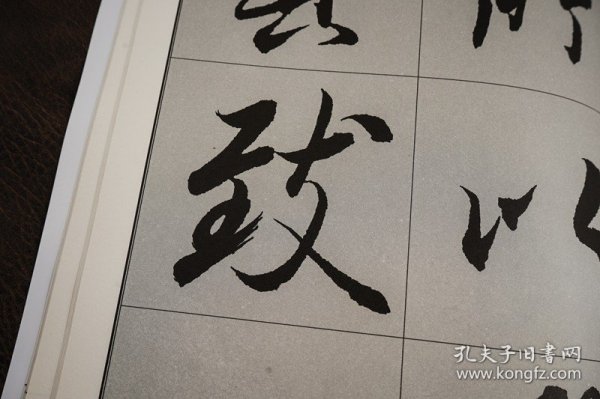 所以
其致
孔夫子旧书网
www.kongfz.com